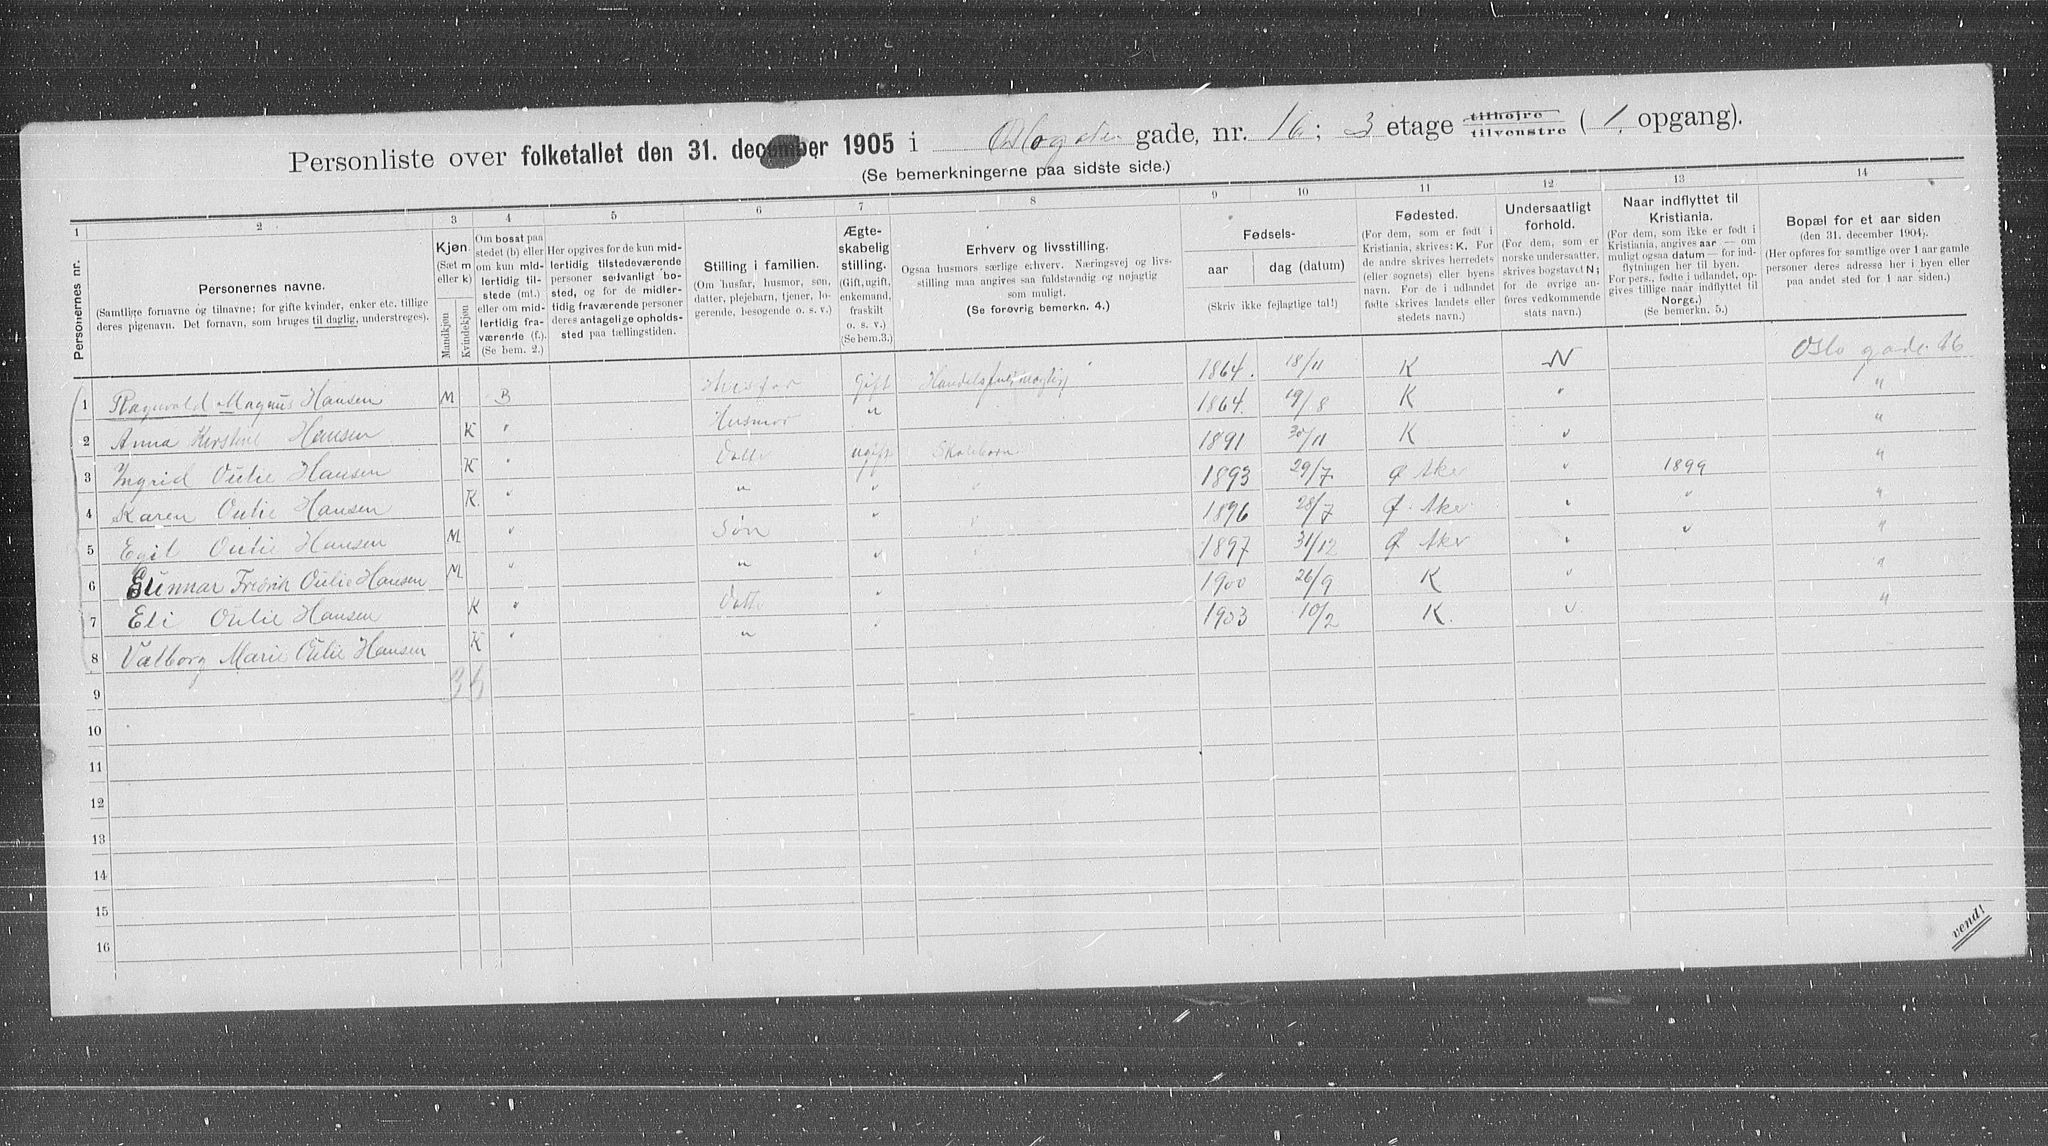 Personliste over folketallet den 31. december 1905 i Oslogaten gade, nr. 16; 3 etage tilhøjre tilvenstre (1. opgang).
(Se bemerkningerne paa sidste side.)
1 2 3 4 5 6 7 8 9 10 11 12 13 14
Personernes nr.
Personernes navne.
(Samtlige fornavne og tilnavne; for gifte kvinder, enker etc. tillige
deres pigenavn. Det fornavn, som bruges til daglig, understreges).
Kjøn.
(Sæt m
eller k)
Mandkjøn
Kvindekjøn
Om bosat paa
stedet (b) eller
om kun mid-
lertidig til-
stede (mt.)
eller om mid-
lertidig fra-
værende (f.).
(Se bem. 2.)
Her opgives for de kun mid-
lertidig tilstedeværende
personer sedvanligt bo-
sted, og for de midler-
tidig fraværende personer
deres antagelige opholds-
sted paa tællingstiden.
Stilling i familien.
(Om husfar, husmor, søn,
datter, plejebarn, tjener, lo-
gerende, besøgende o. s. v.)
Ægte-
skabelig
stilling.
(Gift, ugift,
enkemand,
fraskilt
o. s. v.)
(Se bem.3.)
Erhverv og livsstilling.
Ogsaa husmors særlige erhverv. Næringsvej og livs-
stilling maa angives saa fuldstændig og nøjagtig
som muligt.
(Se forøvrig bemerkn. 4.)
Fødsels-
aar
dag (datum)
(Skriv ikke fejlagtige tal!)
Fødested.
(For dem, som er født i
Kristiania, skrives: K. For
de andre skrives herredets
(eller sognets) eller byens
navn. For de i udlandet
fødte skrives landets eller
stedets navn.)
Undersaatligt
forhold.
(For dem, som er
norske undersaatter,
skrives bogstavet N;
for de øvrige an-
føres vedkommende
stats navn.)
Naar indflyttet til
Kristiania.
(For dem, som ikke er født i
Kristiania, angives aar — om
muligt ogsaa datum — for ind-
flytningen her til byen.
For pers., fødte i udlandet, op-
gives tillige naar indflyttet til
Norge.)
(Se bemerkn. 5.)
Bopæl for et aar siden
(den 31. december 1904).
(Her opføres for samtlige over 1 aar gamle
personer deres adresse her i byen eller
paa andet sted for 1 aar siden.)
1 Ragnvald Magnus Hansen M B Husfar gift Handelsfuldmægtig 1864. 18/11 K N Oslo gade 16
2 Anna Kirstine Hansen K " Husmor " 1864. 19/8 K " "
3 Ingrid Oulie Hansen K " Datter ugift Skolebarn 1891 30/11 K " "
4 Karen Oulie Hansen K. " " " " 1893 29/7 Ø Aker " 1899 "
5 Egil Oulie Hansen M " Søn " " 1896 28/7 Ø. Aker " " "
6 Gunnar Fredrik Oulie Hansen M " " " " 1897 31/12 Ø Aker " " "
7 Eli Oulie Hansen K " Datter " 1900 26/9 K " "
8 Valborg Marie Oulie Hansen K " " " 1903 10/2 K. " "
9 3 5
10
11
12
13
14
15
16
vend!